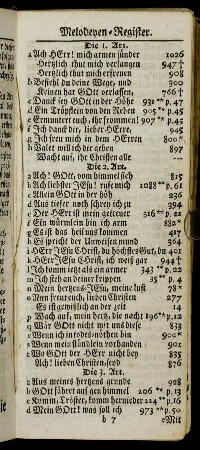 Melodeyen-Register.
Die 1. Art.
a Ach HErr! mich armen sünder 1026
Hertzlich thut mich verlangen 947 †
Hertzlich thut mich erfreuen 908
b Befiehl du deine Wege, und 300
Keinen hat GOtt verlassen, 766 †
c Danck sey GOtt in der Höhe 931 ** p.47
d Ein Tröpflein von den Reben 905 ** p.45
e Ermuntert euch, ihr frommen! 907 ** p.45
f Ich danck dir, lieber HErre, 945
g Ich freu mich in dem HErren 800 *
h Valet will ich der geben 897
Wacht auf, ihr Christen alle ---
Die 2. Art.
a Ach! GOtt, vom himmel sieh 815
b Ach liebster JEsu! rufe mich 1088 ** p.61
c Allein GOtt in der höh 436
d Aus tiefer noth schrey ich zu 394
e Der HErr ist mein getreuer 516 ** p.22
f Ein würmlein bin ich arm 882 *
g Es ist das heil uns kommen 417
h Es spricht der Unweisen mund 364
i HErr JEsu Christ, du höchstes Gut, du
k HErr JEsu Christ, ich weiß gar 944 †
l Ich komm ietzt als ein armer 343 ** p.22
m Ich steh an deiner krippen 35 ** p.4
n Mein hertzens-JEsu, meine lust 78 *
o Nun freut euch, lieben Christen 277
Es ist gewißlich an der zeit 14
p Wach auf, mein hertz, die nacht 196 ** p.12
q Wär GOtt nicht mit uns diese 833
r Wenn ich in todes-nöthen bin 900 *
s Wenn mein stündlein vorhanden 901
t Wo GOtt der HErr nicht bey 835
Ach! lieben Christen, seyd 876
Die 3. Art.
a Aus meines hertzens grunde 928
b GOtt fähret auf gen himmel 206 ** p.13
c Komm, Tröster, komm hernieder 224 ** p.16
d Mein GOtt! was soll ich 973 ** p.50
b 7 e Mit